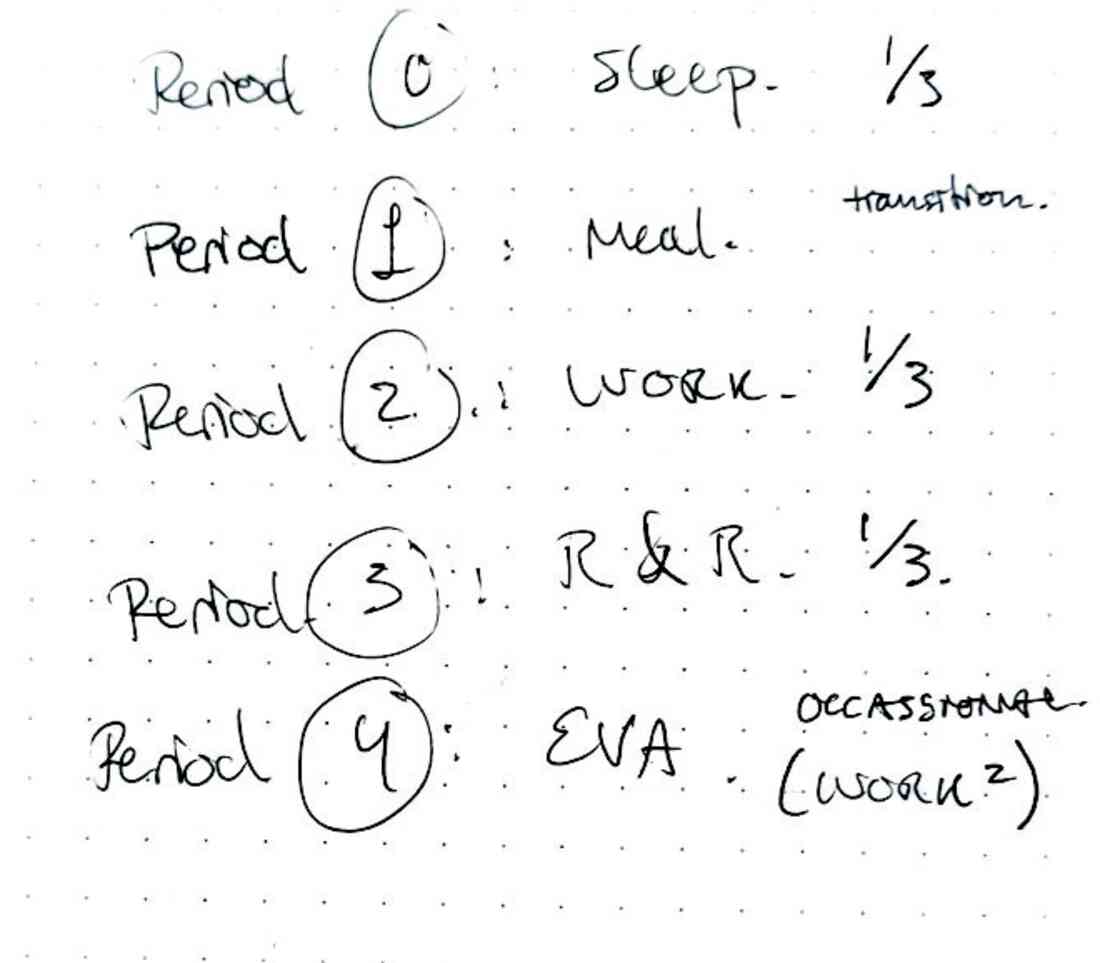 Period 0 : Sleep. 1/3
transition.
Period 1 : Meal.
Period 2 : WORK. 1/3
Period 3 : R & R. 1/3.
OCCASSIONAL
Period 4 : EVA. (WORK²)